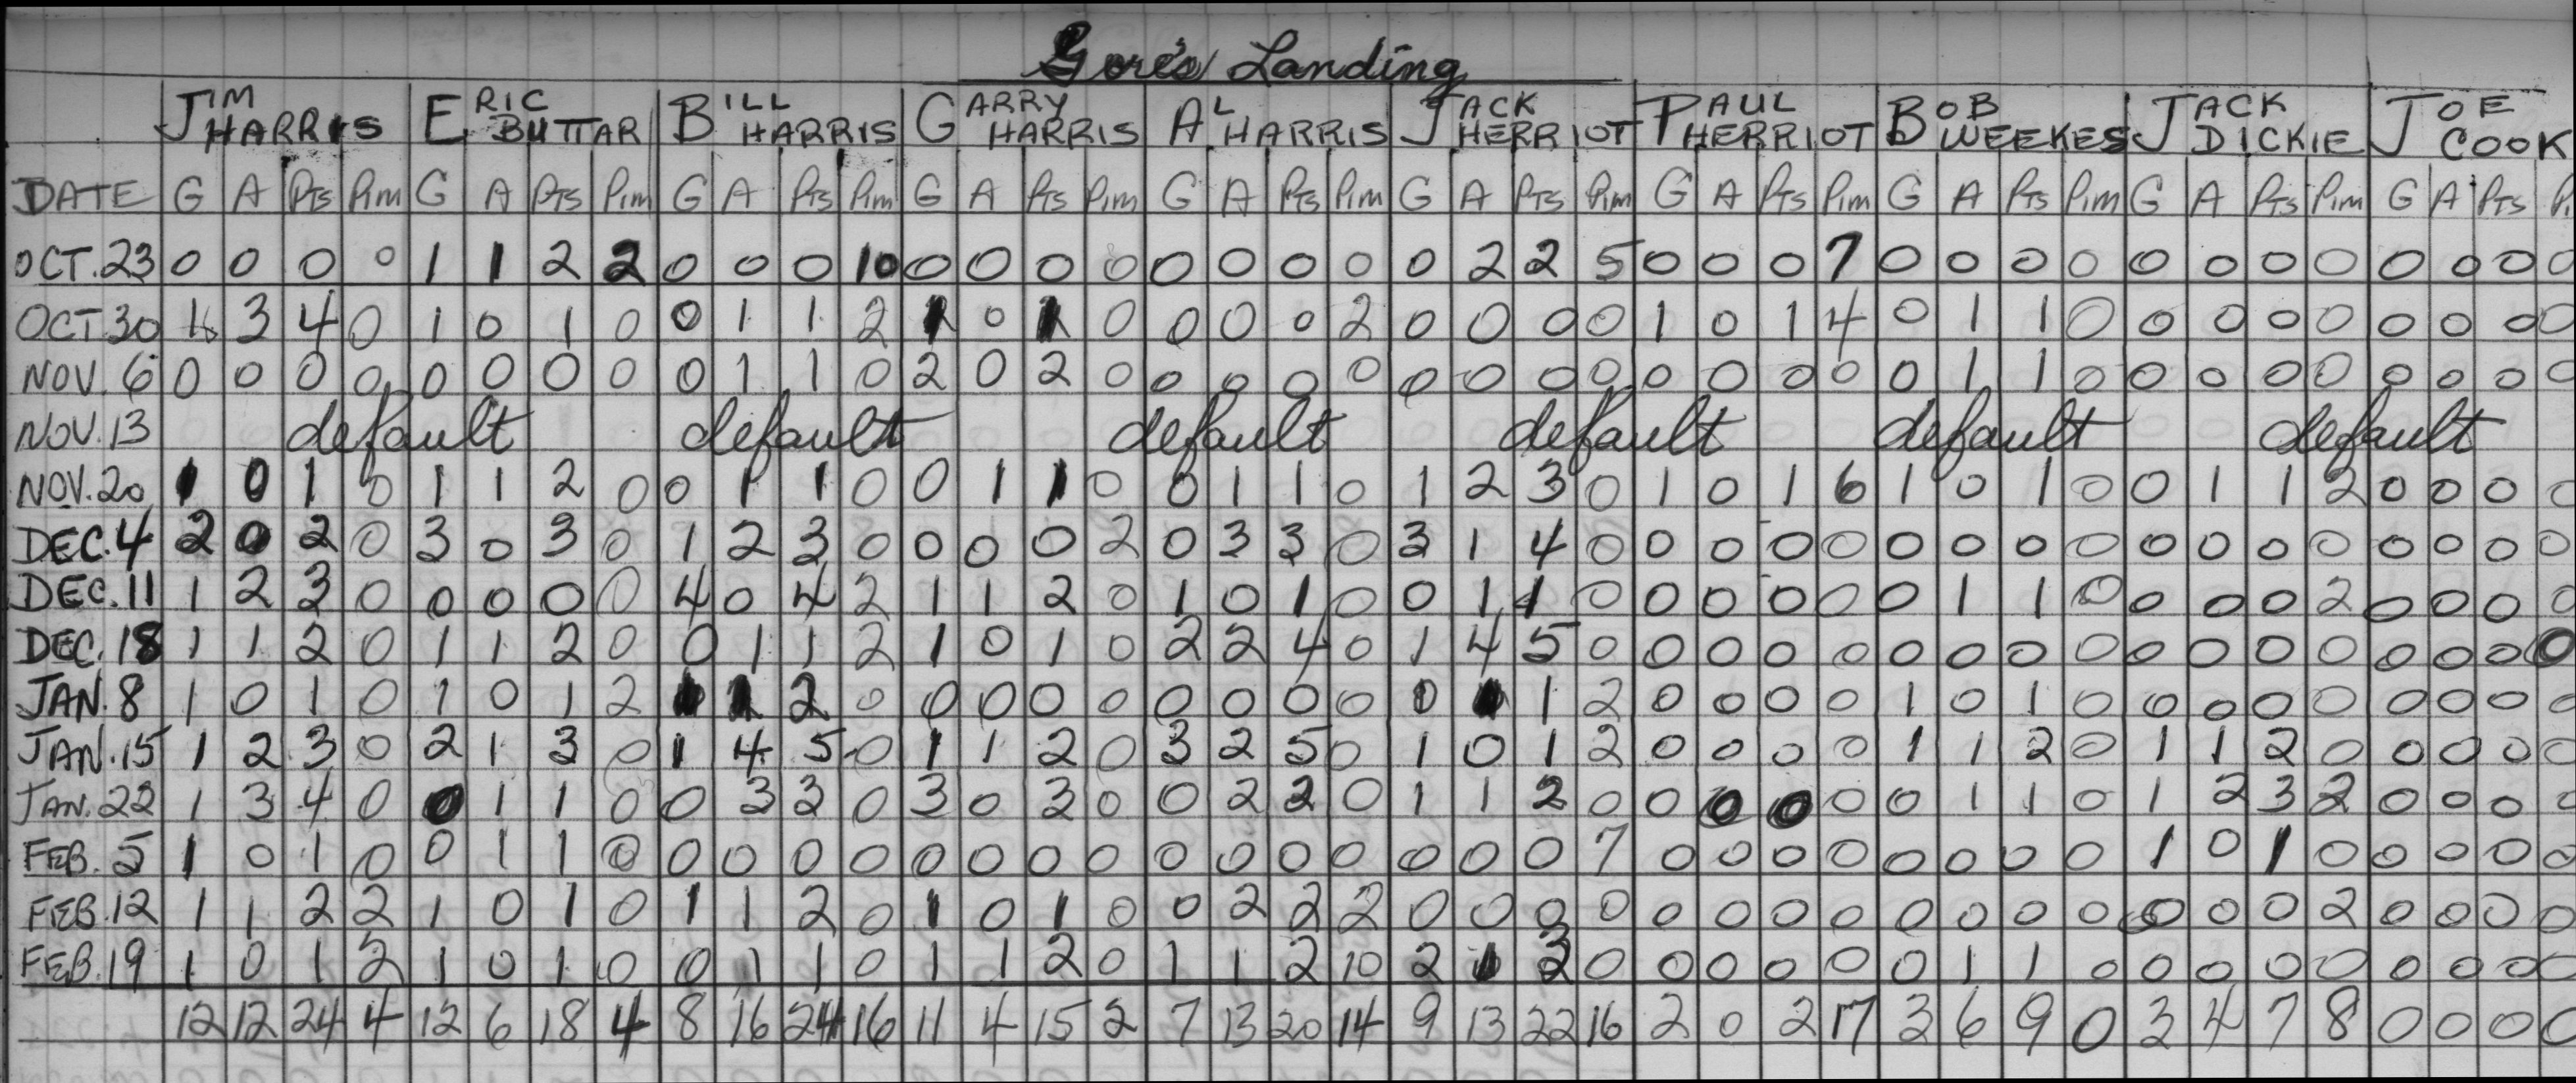 Gore's Landing
JIM HARRIS ERIC BUTTAR BILL HARRIS GARRY HARRIS AL HARRIS JACK HERRIOT PAUL HERRIOT BOB WEEKES JACK DICKIE JOE COOK
DATE G A Pts Pim G A Pts Pim G A Pts Pim G A Pts Pim G A Pts Pim G A Pts Pim G A Pts Pim G A Pts Pim G A Pts Pim G A Pts
OCT. 23 0 0 0 0 1 1 2 2 0 0 0 10 0 0 0 0 0 0 0 0 0 2 2 5 0 0 0 7 0 0 0 0 0 0 0 0 0 0 0 0
OCT 30 1 3 4 0 1 0 1 0 0 1 1 2 1 0 1 0 0 0 0 2 0 0 0 0 1 0 1 4 0 1 1 0 0 0 0 0 0 0 0 0
NOV. 6 0 0 0 0 0 0 0 0 0 1 1 0 2 0 2 0 0 0 0 0 0 0 0 0 0 0 0 0 0 1 1 0 0 0 0 0 0 0 0 0
NOV. 13 default default default default default default
NOV. 20 1 0 1 0 1 1 2 0 0 1 1 0 0 1 1 0 0 1 1 0 1 2 3 0 1 0 1 6 1 0 1 0 0 1 1 2 0 0 0 0
DEC. 4 2 0 2 0 3 0 3 0 1 2 3 0 0 0 0 2 0 3 3 0 3 1 4 0 0 0 0 0 0 0 0 0 0 0 0 0 0 0 0 0
DEC. 11 1 2 3 0 0 0 0 0 4 0 4 2 1 1 2 0 1 0 1 0 0 1 1 0 0 0 0 0 0 1 1 0 0 0 0 2 0 0 0 0
DEC. 18 1 1 2 0 1 1 2 0 0 1 1 2 1 0 1 0 2 2 4 0 1 4 5 0 0 0 0 0 0 0 0 0 0 0 0 0 0 0 0 0
JAN. 8 1 0 1 0 1 0 1 2 1 1 2 0 0 0 0 0 0 0 0 0 0 1 1 2 0 0 0 0 1 0 1 0 0 0 0 0 0 0 0 0
JAN. 15 1 2 3 0 2 1 3 0 1 4 5 0 1 1 2 0 3 2 5 0 1 0 1 2 0 0 0 0 1 1 2 0 1 1 2 0 0 0 0 0
JAN. 22 1 3 4 0 0 1 1 0 0 3 3 0 3 0 3 0 0 2 2 0 1 1 2 0 0 0 0 0 0 1 1 0 1 2 3 2 0 0 0 0
FEB. 5 1 0 1 0 0 1 1 0 0 0 0 0 0 0 0 0 0 0 0 0 0 0 0 7 0 0 0 0 0 0 0 0 1 0 1 0 0 0 0 0
FEB. 12 1 1 2 2 1 0 1 0 1 1 2 0 1 0 1 0 0 2 2 2 0 0 0 0 0 0 0 0 0 0 0 0 0 0 0 2 0 0 0 0
FEB. 19 1 0 1 2 1 0 1 0 0 1 1 0 1 1 2 0 1 1 2 10 2 1 3 0 0 0 0 0 0 1 1 0 0 0 0 0 0 0 0 0
12 12 24 4 12 6 18 4 8 16 24 16 11 4 15 2 7 13 20 14 9 13 22 16 2 0 2 17 3 6 9 0 3 4 7 8 0 0 0 0